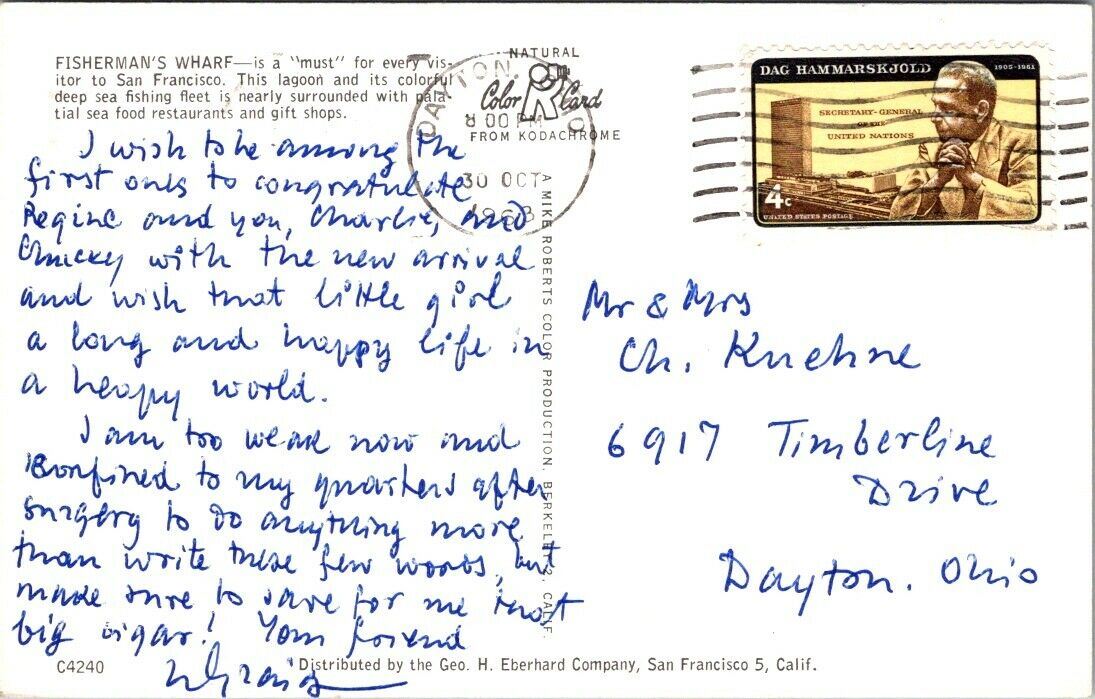 FISHERMAN'S WHARF—is a "must" for every vis-
itor to San Francisco. This lagoon and its colorful
deep sea fishing fleet is nearly surrounded with pala-
tial sea food restaurants and gift shops.
I wish to be among the
first ones to congratulate
Regine and you, Charlie, and
Chucky with the new arrival
and wish that little girl
a long and happy life in
a happy world.
I am too weak now and
confined to my quarters after
surgery to do anything more
than write these few words, but
made sure to save for me that
big cigar! Your friend
C4240
NATURAL
Color R Card
FROM KODACHROME
DAYTON, O
8 00 PM
30 OCT
1963
A MIKE ROBERTS COLOR PRODUCTION, BERKELEY 2, CALIF.
Distributed by the Geo. H. Eberhard Company, San Francisco 5, Calif.
DAG HAMMARSKJOLD 1905-1961
SECRETARY-GENERAL
OF THE
UNITED NATIONS
4c
UNITED STATES POSTAGE
Mr & Mrs
Ch. Kuehne
6917 Timberline
Drive
Dayton. Ohio